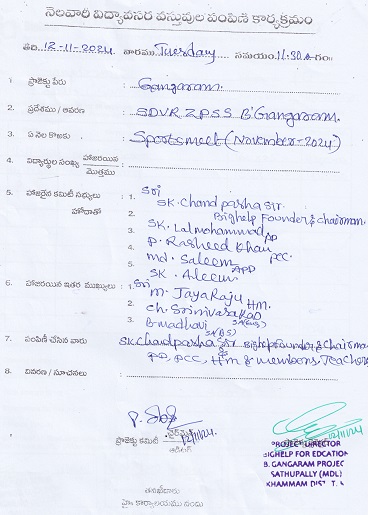 నెలవారీ విద్యావసర వస్తువుల పంపిణీ కార్యక్రమం
తేది 12-11-2024 వారము Tuesday సమయం 11:30 A గం
1. ప్రాజెక్టు పేరు : Gangaram
2. ప్రదేశము / ఆవరణ : SDVR ZPSS B'Gangaram.
3. ఏ నెల కొరకు : Sportsmeet (November-2024)
4. విద్యార్థుల సంఖ్య హాజరయిన మొత్తము :
5. హాజరైన కమిటీ సభ్యులు హోదాతో : 1. Sri SK. Chand pasha Sir.
2. Bighelp Founder & chairman.
3. SK. Lalmohammad PD
4. P. Rasheed Khan PCC.
5. md. Saleem APD
SK. Aleem
6. హాజరయిన ఇతర ముఖ్యులు : 1. Sri m. JayaRaju HM.
2. ch. Srinivasa Rao
3. B. madhavi SA(BS)
7. పంపిణీ చేసిన వారు : SK Chand pasha Sir Bighelp Founder & Chairman
PD, PCC, Hm & members, Teachers
8. వివరణ / సూచనలు :
12/11/24
ప్రాజెక్టు కమిటీ చైర్మైన్
ఆడిటర్
12/11/24
PROJECT DIRECTOR
BIGHELP FOR EDCATION
B. GANGARAM PROJEC
SATHUPALLY (MDL)
KHAMMAM DIST. T.S
తహశీల్దారు
హై కార్యాలయము నందు